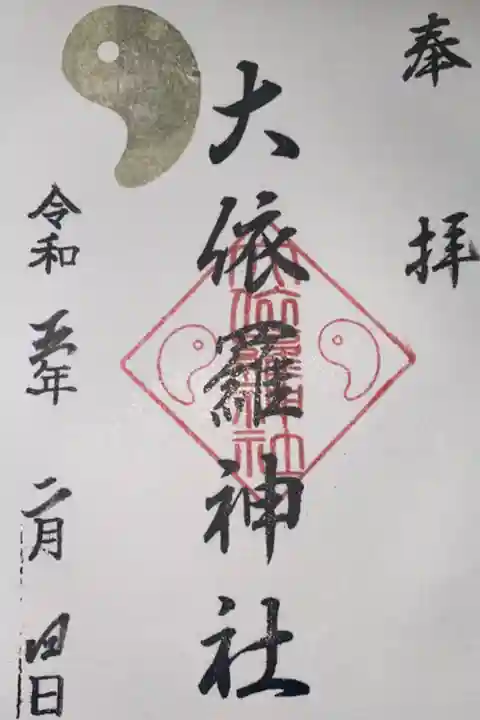 奉拝
大依羅神社
令和五年二月四日